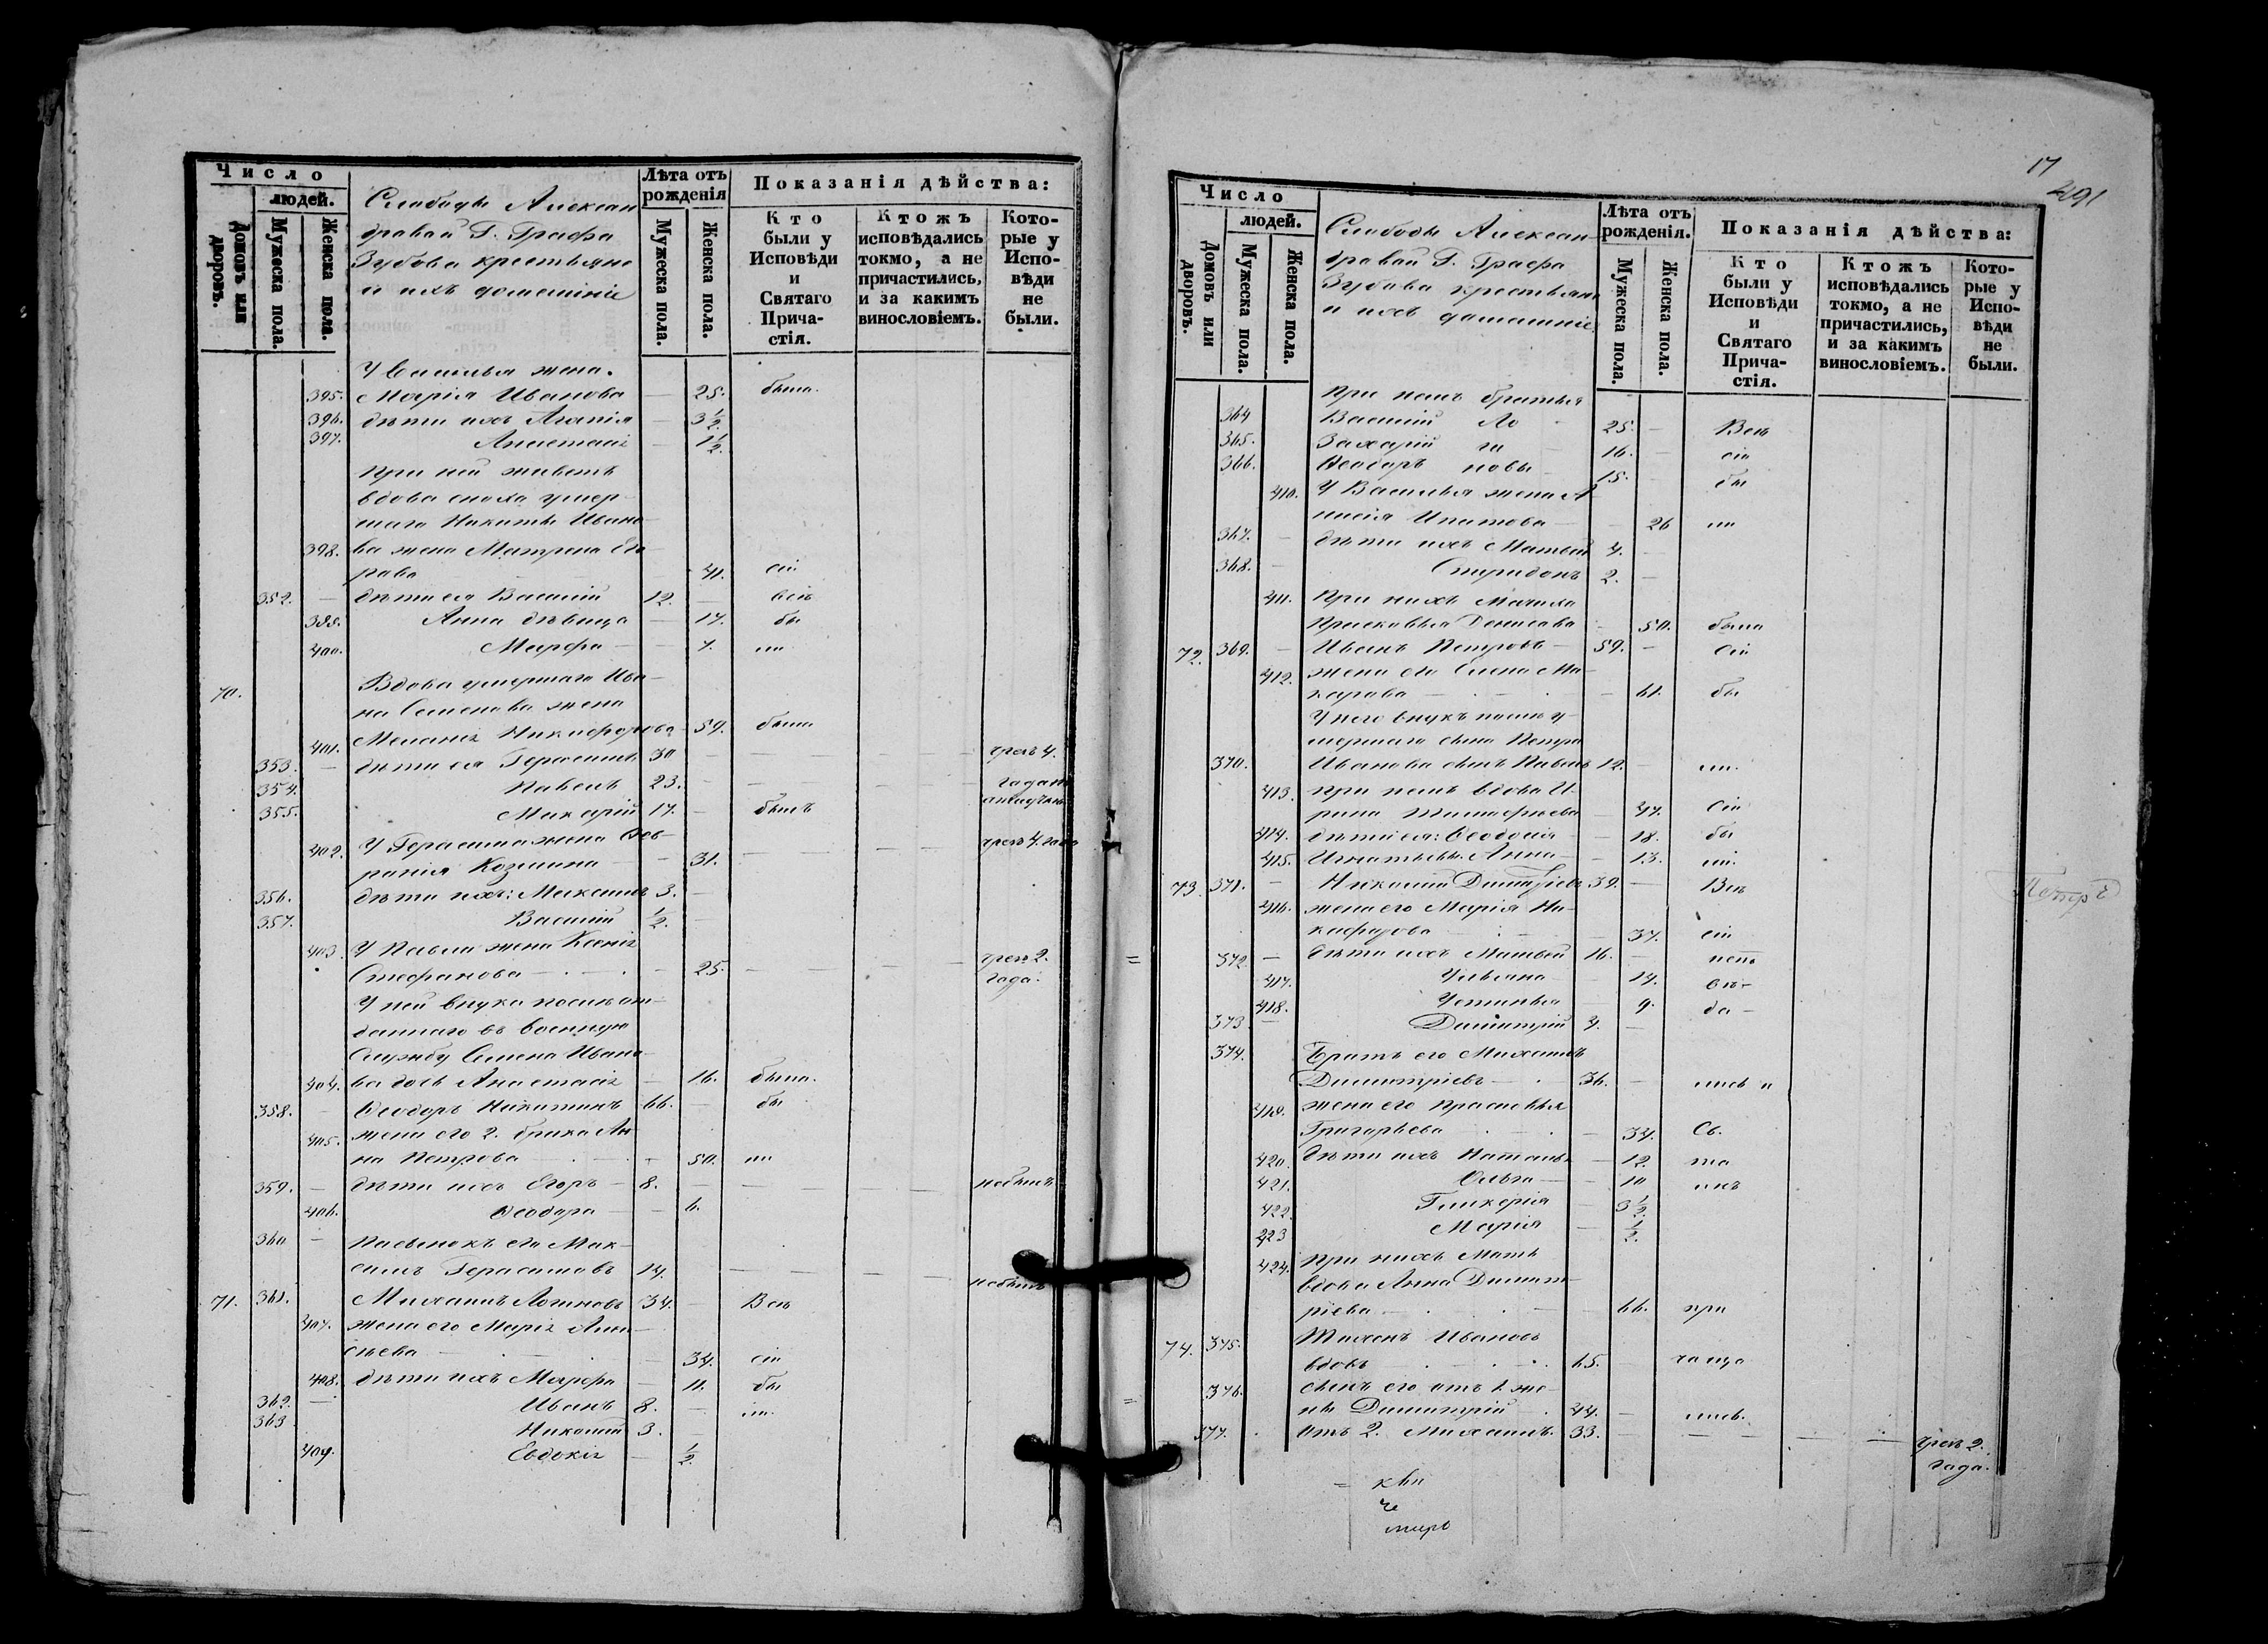 Число
людей.
Домовъ или дворовъ.
Мужеска пола.
Женска пола.
Слободы Алексан
дровой Г. Графа
Зубова крестьяне
и ихъ домашніе
Лѣта отъ рожденія
Мужеска пола.
Женска пола.
Показанія дѣйства:
Кто были у Исповѣди и Святаго Причастія.
Ктожъ исповѣдались токмо, а не причастились, и за какимъ винословіемъ.
Которые у Исповѣди не были.
У Василья жена
395. Марія Иванова — 25. была.
396. дѣти ихъ Агапія — 3 1/2.
397. Анастасія — 1 1/2.
При ней живетъ
вдова сноха умер-
шаго Никиты Ивано-
398. ва жена Матрена
41.
352. — дѣти ея Василій 12. — всѣ
399. Анна дѣвица — 17. бы
400. Марфа — 7. ли
70. Вдова умершаго Ива-
на Семенова жена
401. Меланія Никифорова 59. была
353. — дѣти ея Герасимъ 30 — — — чрезъ 4.
354. Павелъ 23. — —
355. Макарій 17. — былъ
402. У Герасима жена Фев-
ронія Козмина — 31. — — чрезъ 4. года
356. дѣти ихъ: Максимъ 3. —
357. Василій 1/2. —
403. У Павла жена Ксенія
Стефанова — 25. — — чрезъ 2.
года.
У ней внука послѣ от-
даннаго въ военную
службу Семена Ивано-
404. ва дочь Анастасія — 16. была.
358. — Феодоръ Никитинъ 66. — бы
405. жена его 2. брака Ан-
на Петрова — 50. ли
359. — дѣти ихъ Егоръ 8. — — — небылъ
406. Феодора — 6.
360 — Пасынокъ его Мак-
симъ Герасимовъ 14. — — небылъ
71. 361. Михаилъ Логиновъ 34. — Всѣ
407. жена его Марія
34. сіи
408. дѣти ихъ Марфа — 11. бы
362. — Иванъ 8. — ли.
363 Николай 3. —
409. Евдокія — 1/2.
17
291
Число
людей.
Домовъ или дворовъ.
Мужеска пола.
Женска пола.
Слободы Алексан-
дровой Г. Графа
Зубова крестьяне
и ихъ домашніе
Лѣта отъ рожденія.
Мужеска пола.
Женска пола.
Показанія дѣйства:
Кто были у Исповѣди и Святаго Причастія.
Ктожъ исповѣдались токмо, а не причастились, и за какимъ винословіемъ.
Которые у Исповѣди не были.
При немъ братья
364 Василій Ло 25. — Всѣ
365. Захарій ги 16. — сіи
366. Феодоръ новы 15. — бы
410. У Василья жена
Ипатова — 26 ли
367. — дѣти ихъ Матвей 4. —
368. — Спиридонъ 2. —
411. При нихъ Мачиха
Прасковья Денисова — 50. была
72. 369. — Иванъ Петровъ 59. — Сіи
412. жена его Елена Ма-
карова — 61. бы
У него внукъ послѣ у-
мершаго сына Петра
370. Иванова сынъ Павелъ 12. — ли.
413. При немъ вдова И-
рина Тимофеева 47. Сіи
414. дѣти ея: Феодосія — 18. бы
415. Игнатьевы Анна — 13. ли.
73. 371. — Николай Димитріевъ 39. — Всѣ
416. жена его Марія Ни-
кифорова — 37. сіи
= 372 — дѣти ихъ Матвей 16. — испо
417. Ульяна — 14. вѣ-
418. Устинья — 9. да-
373 — Димитрій 4. —
374. Братъ его Михаилъ
Димитріевъ — 36. — лись и
419. жена его Прасковья
Григорьева — 34. Св.
420. дѣти ихъ Наталья — 12. та
421. Ольга — 10 инъ
422. Гликерія — 3 1/2.
423 Марія — 1/2.
424. При нихъ Мать
вдова Анна Димит-
ріева — 66. при
74. 375. Тихонъ Ивановъ
вдовъ 65. чаща
= 376. сынъ его отъ 1. же-
ны Димитрій 44. — лись.
377. отъ 2. Михаилъ. 33. — — — чрезъ 2.
года.